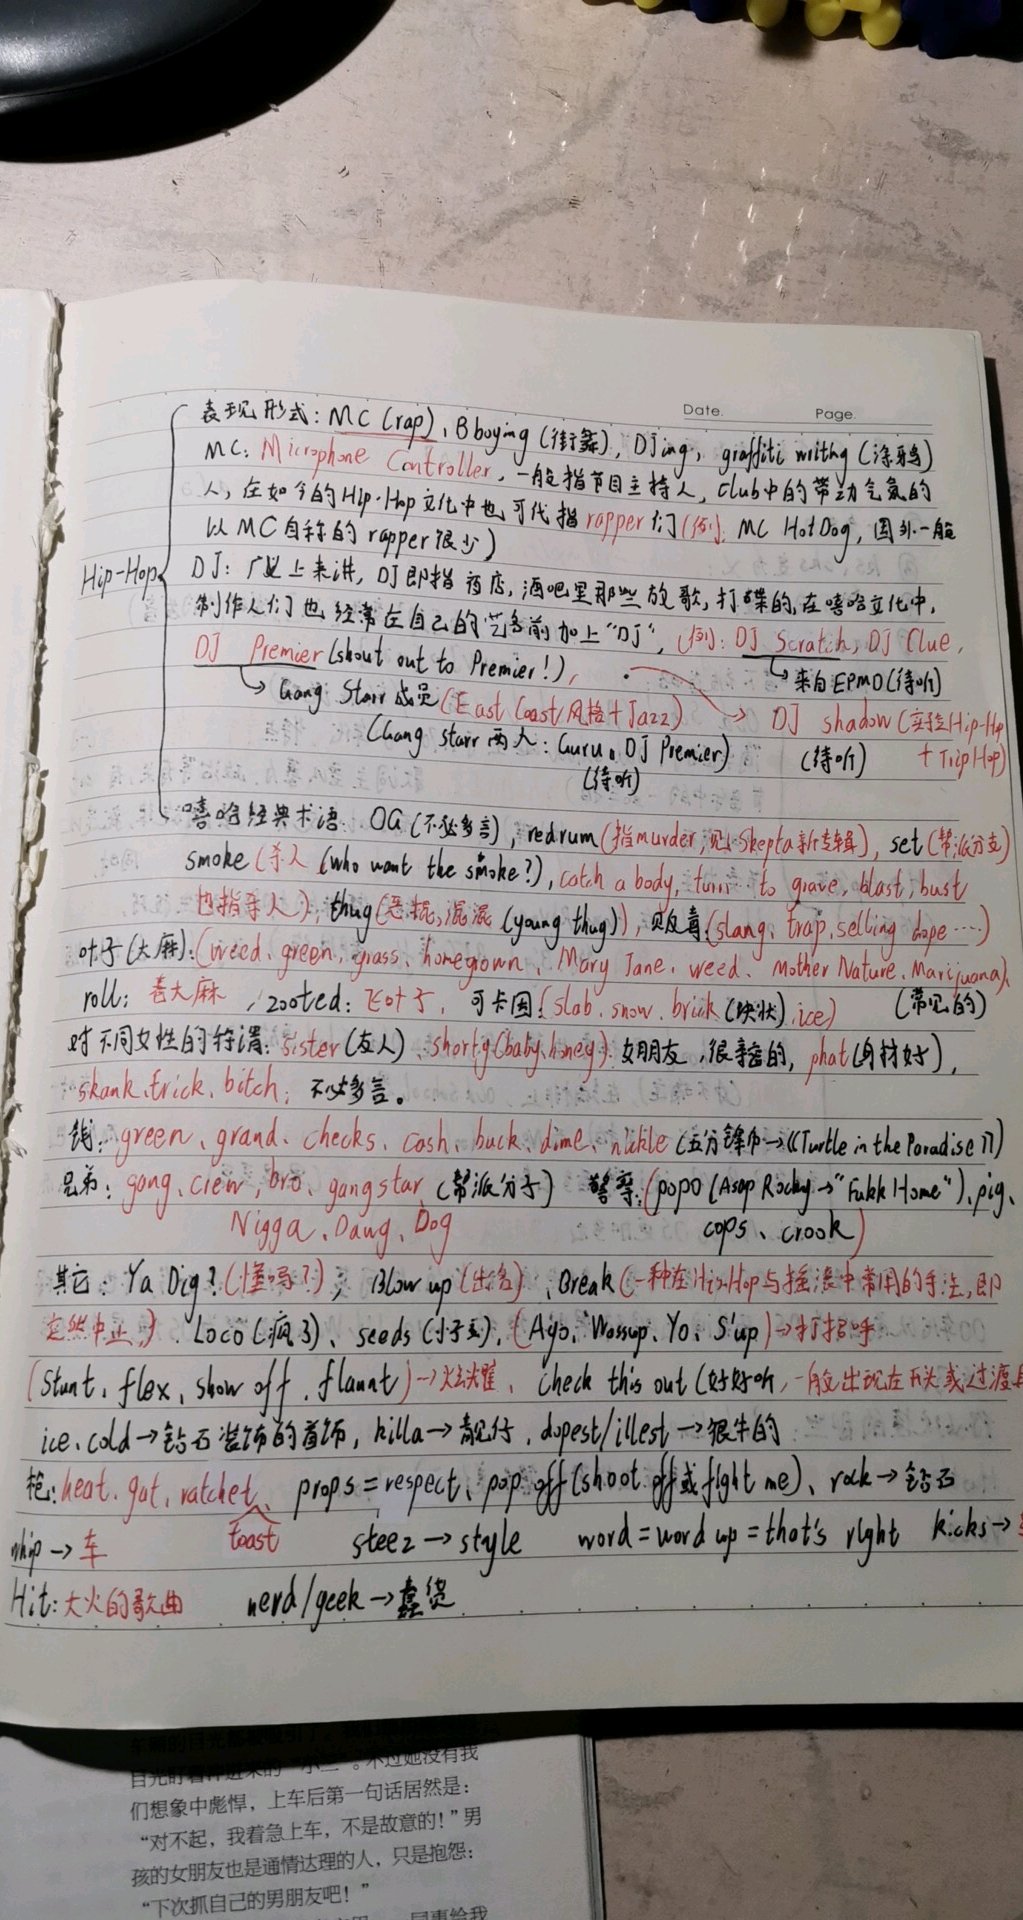 Date.
Page.
表现形式: MC (rap)、Bboying (街舞), DJing, graffiti writing (涂鸦)
MC: Microphone Controller, 一般指节目主持人, Club中的带动气氛的
人, 在如今的Hip-Hop文化中也可代指rapper们(例: MC HotDog, 国外一般
以MC自称的rapper很少)
Hip-Hop
DJ: 广义上来讲, DJ即指 夜店, 酒吧里那些放歌, 打碟的, 在嘻哈文化中,
制作人们也经常在自己的艺名前加上“DJ”, (例: DJ Scratch, DJ Clue,
DJ Premier (shout out to Premier!),
来自EPMD(待听)
Gang Starr 成员(East Coast风格+Jazz)
DJ shadow (实验Hip-Hop
(Gang starr 两人: Guru、DJ Premier)
(待听)
+ Trip Hop)
(待听)
嘻哈经典术语: OG (不必多言), redrum (指murder, 见Skepta新专辑), set (帮派分支)
smoke (杀人 (who want the smoke?), catch a body, turn to grave, blast, bust
也指寻人), thug (恶棍, 混混 (young thug)), 贩毒 (slang、trap、selling dope ....)
叶子(大麻): (weed、green, grass、homegrown、Mary Jane、weed、Mother Nature、Marijuana),
roll: 卷大麻, zooted: 飞叶子, 可卡因 (slab、snow、brick (块状), ice)
(常见的)
对不同女性的称谓: sister (友人)、shorty (baby, honey): 女朋友, 很亲密的, phat (身材好),
skank、trick、bitch: 不必多言。
钱: green、grand、checks、cash、buck、dime、nickle (五分镍币→《Turtle in the Paradise》)
兄弟: gang、crew, bro、gangstar (帮派分子) 警察: (popo (Asap Rocky→"Fukk Home")、pig、
Nigga、Dawg、Dog
cops、crook)
其它: Ya Dig? (懂吗?), Blow up (出名)、Break (一种在Hip-Hop与摇滚中常用的手法, 即
突然中止,)、Loco (疯了)、seeds (小子), (Ayo、Wassup、Yo、S'up)→打招呼
(Stunt、flex、show off、flaunt)→炫耀、check this out (好好听, 一般出现在开头或过渡
ice、cold→钻石装饰的首饰, killa→靓仔, dopest/illest→很牛的
枪: heat、gat、ratchet、 props = respect、pop off (shoot off或fight me)、rock→钻石
toast
whip→车
steez→style word = word up = that's right kicks→
Hit: 大火的歌曲 nerd/geek→蠢货
目光盯着
不过她没有我
们想象中彪悍，上车后第一句话居然是：
“对不起，我着急上车，不是故意的！”男
孩的女朋友也是通情达理的人，只是抱怨：
“下次抓自己的男朋友吧！”